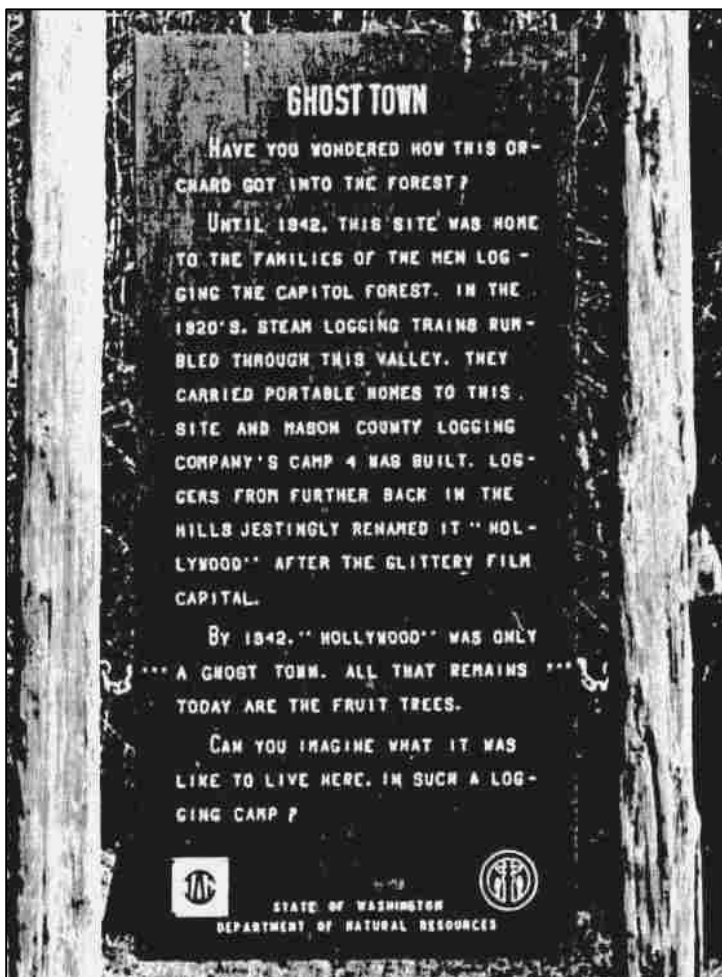 GHOST TOWN
HAVE YOU WONDERED HOW THIS OR-
CHARD GOT INTO THE FOREST?
UNTIL 1942, THIS SITE WAS HOME
TO THE FAMILIES OF THE MEN LOG-
GING THE CAPITOL FOREST. IN THE
1920'S, STEAM LOGGING TRAINS RUM-
BLED THROUGH THIS VALLEY. THEY
CARRIED PORTABLE HOMES TO THIS
SITE AND MASON COUNTY LOGGING
COMPANY'S CAMP 4 WAS BUILT. LOG-
GERS FROM FURTHER BACK IN THE
HILLS JESTINGLY RENAMED IT "HOL-
LYWOOD" AFTER THE GLITTERY FILM
CAPITAL.
BY 1942, "HOLLYWOOD" WAS ONLY
A GHOST TOWN. ALL THAT REMAINS
TODAY ARE THE FRUIT TREES.
CAN YOU IMAGINE WHAT IT WAS
LIKE TO LIVE HERE, IN SUCH A LOG-
GING CAMP?
IAC
STATE OF WASHINGTON
DEPARTMENT OF NATURAL RESOURCES